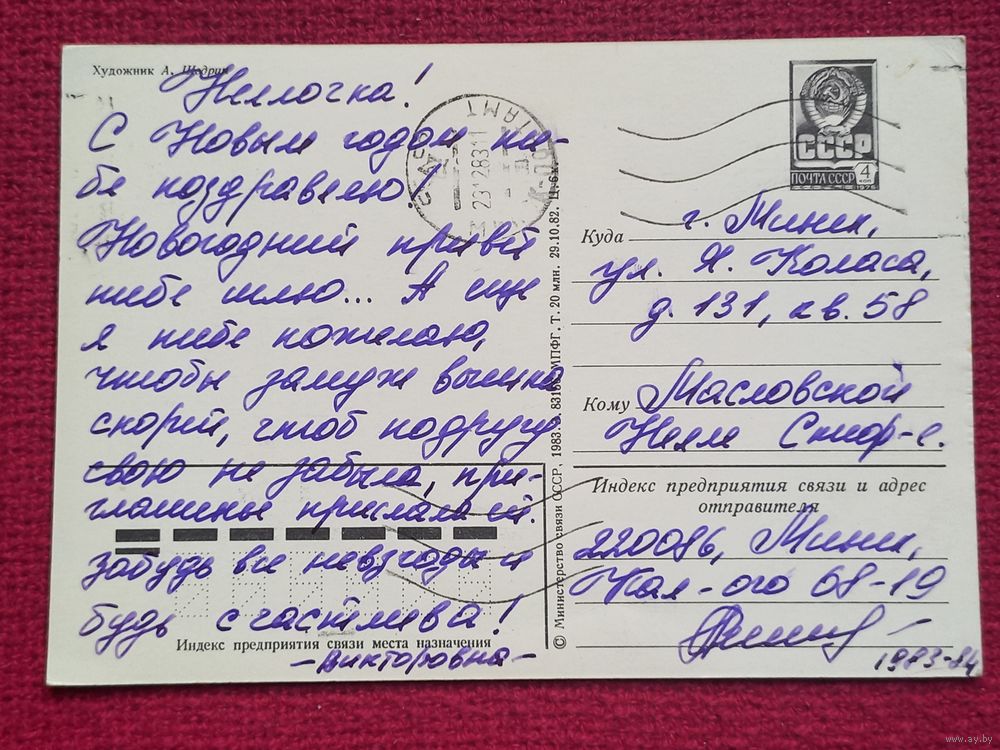 Художник А. Щедрин
Неллочка!
С Новым годом те-
бе поздравляю!
Новогодний привет
тебе шлю... А еще
я тебе пожелаю,
чтобы замуж вышла
скорей, чтоб подругу
свою не забыла, при-
глашенье прислала ей.
Забудь все невзгоды и
будь счастлива!
Индекс предприятия связи места назначения
-Викторовна-
231283
© Министерство связи СССР, 1983. З. 83156. МПФГ. Т. 20 млн. 29.10.82. Ц. 6 к.
СССР
ПОЧТА СССР 4 КОП
1976
Куда г. Минск,
ул. Я. Коласа,
д. 131, кв. 58
Кому Масловской
Нелле
Индекс предприятия связи и адрес
отправителя
220086, Минск,
Кал-ого 68-19
1983-84
www.ay.by